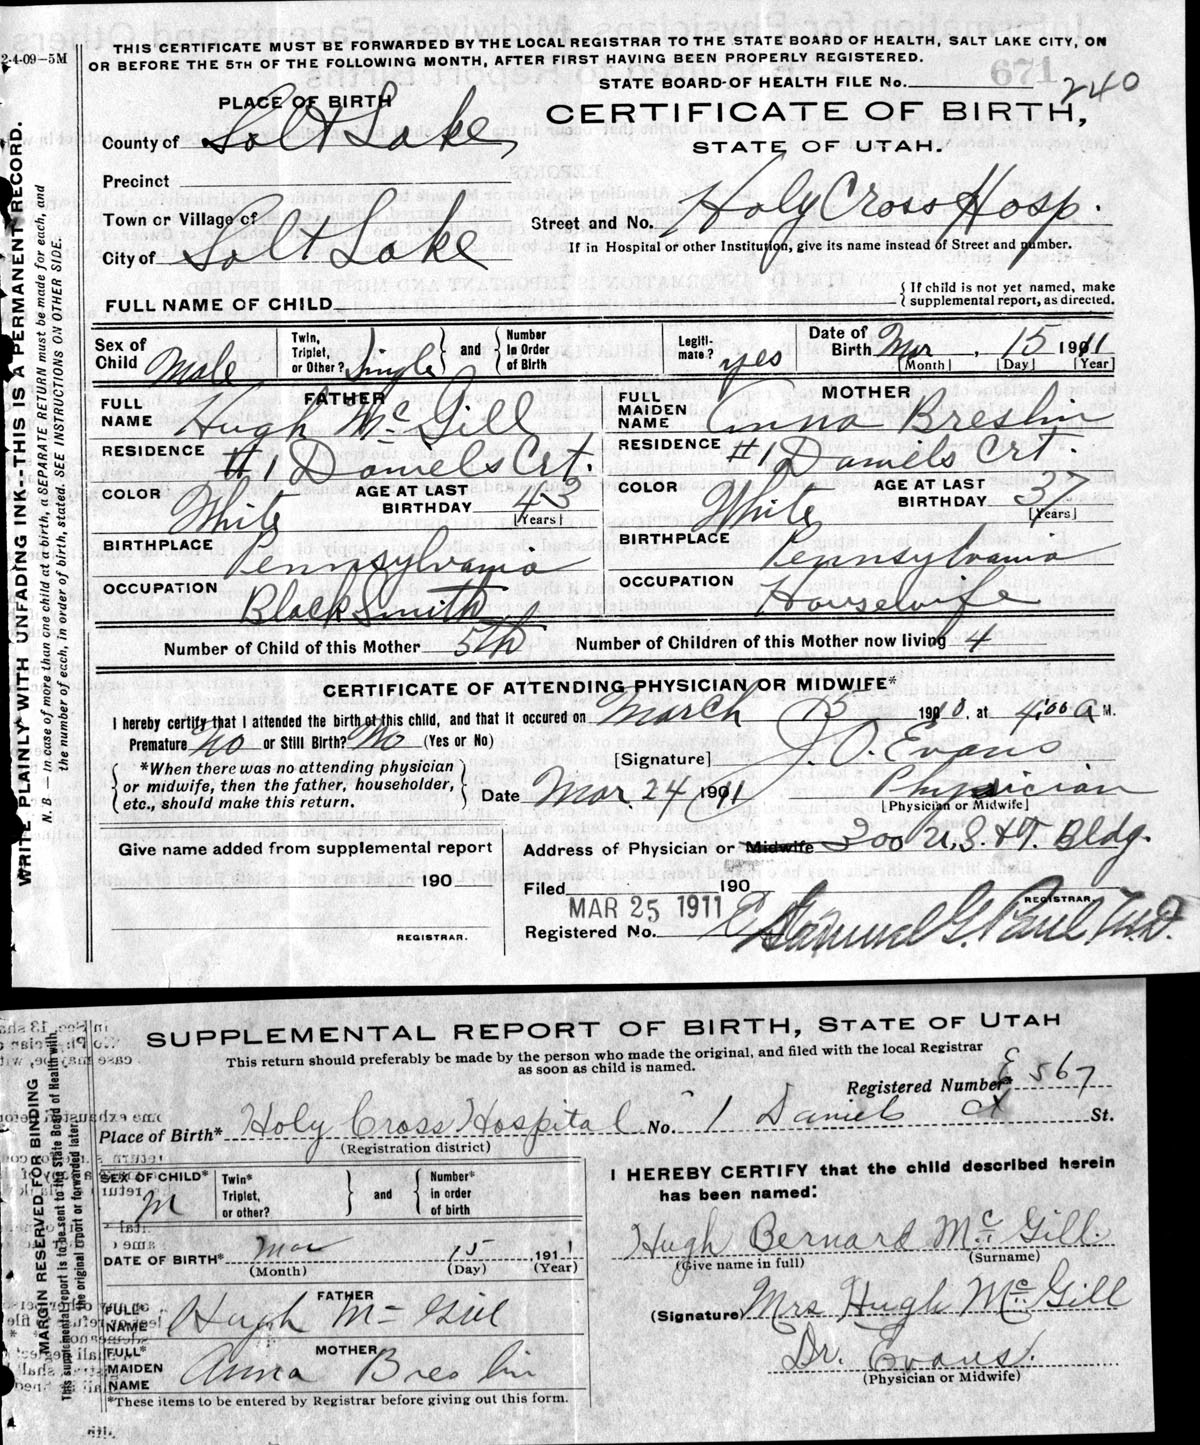 2-4-09--5M
THIS CERTIFICATE MUST BE FORWARDED BY THE LOCAL REGISTRAR TO THE STATE BOARD OF HEALTH, SALT LAKE CITY, ON
OR BEFORE THE 5TH OF THE FOLLOWING MONTH, AFTER FIRST HAVING BEEN PROPERLY REGISTERED.
671
STATE BOARD OF HEALTH FILE No. 240
PLACE OF BIRTH
CERTIFICATE OF BIRTH,
STATE OF UTAH.
County of Salt Lake
Precinct
Town or Village of
Street and No. Holy Cross Hosp.
City of Salt Lake
If in Hospital or other Institution, give its name instead of Street and number.
FULL NAME OF CHILD
{ If child is not yet named, make
supplemental report, as directed.
Sex of Child Male
Twin, Triplet, or Other? Single } and { Number In Order of Birth
Legitimate? yes
Date of Birth Mar, 15 1911
[Month] [Day] [Year]
FATHER
FULL NAME Hugh Mc Gill
RESIDENCE #1 Daniels Crt.
COLOR White AGE AT LAST BIRTHDAY 43
[Years]
BIRTHPLACE Pennsylvania
OCCUPATION BlackSmith
MOTHER
FULL MAIDEN NAME Anna Breslin
RESIDENCE #1 Daniels Crt.
COLOR White AGE AT LAST BIRTHDAY 37
[Years]
BIRTHPLACE Pennsylvania
OCCUPATION Housewife
Number of Child of this Mother 5th Number of Children of this Mother now living 4
CERTIFICATE OF ATTENDING PHYSICIAN OR MIDWIFE*
I hereby certify that I attended the birth of this child, and that it occured on March 15 1910, at 4:00 A M.
Premature? No or Still Birth? No (Yes or No)
[Signature] J. O. Evans
{ *When there was no attending physician
or midwife, then the father, householder,
etc., should make this return. }
Date Mar. 24 1911 Physician
[Physician or Midwife]
Give name added from supplemental report
190
REGISTRAR.
Address of Physician or Midwife 200 U.S. & T. Bldg.
Filed 190
MAR 25 1911
REGISTRAR
Registered No. Samuel G. Paul M.D.
WRITE PLAINLY WITH UNFADING INK--THIS IS A PERMANENT RECORD.
N. B. — in case of more than one child at a birth, a SEPARATE RETURN must be made for each, and
the number of each, in order of birth, stated. SEE INSTRUCTIONS ON OTHER SIDE.
SUPPLEMENTAL REPORT OF BIRTH, STATE OF UTAH
This return should preferably be made by the person who made the original, and filed with the local Registrar
as soon as child is named.
Registered Number* E 567
Place of Birth* Holy Cross Hospital No. 1 Daniels Ct St.
(Registration district)
SEX OF CHILD* M
Twin* Triplet, or other? } and { Number* in order of birth
DATE OF BIRTH* Mar 15 1911
(Month) (Day) (Year)
FATHER
FULL* NAME Hugh Mc Gill
MOTHER
FULL* MAIDEN NAME Anna Breslin
*These items to be entered by Registrar before giving out this form.
I HEREBY CERTIFY that the child described herein
has been named:
Hugh Bernard Mc Gill.
(Give name in full) (Surname)
(Signature) Mrs Hugh Mc Gill
Dr. Evans.
(Physician or Midwife)
MARGIN RESERVED FOR BINDING
This supplemental report is to be sent to the State Board of Health with
the original report or forwarded later.